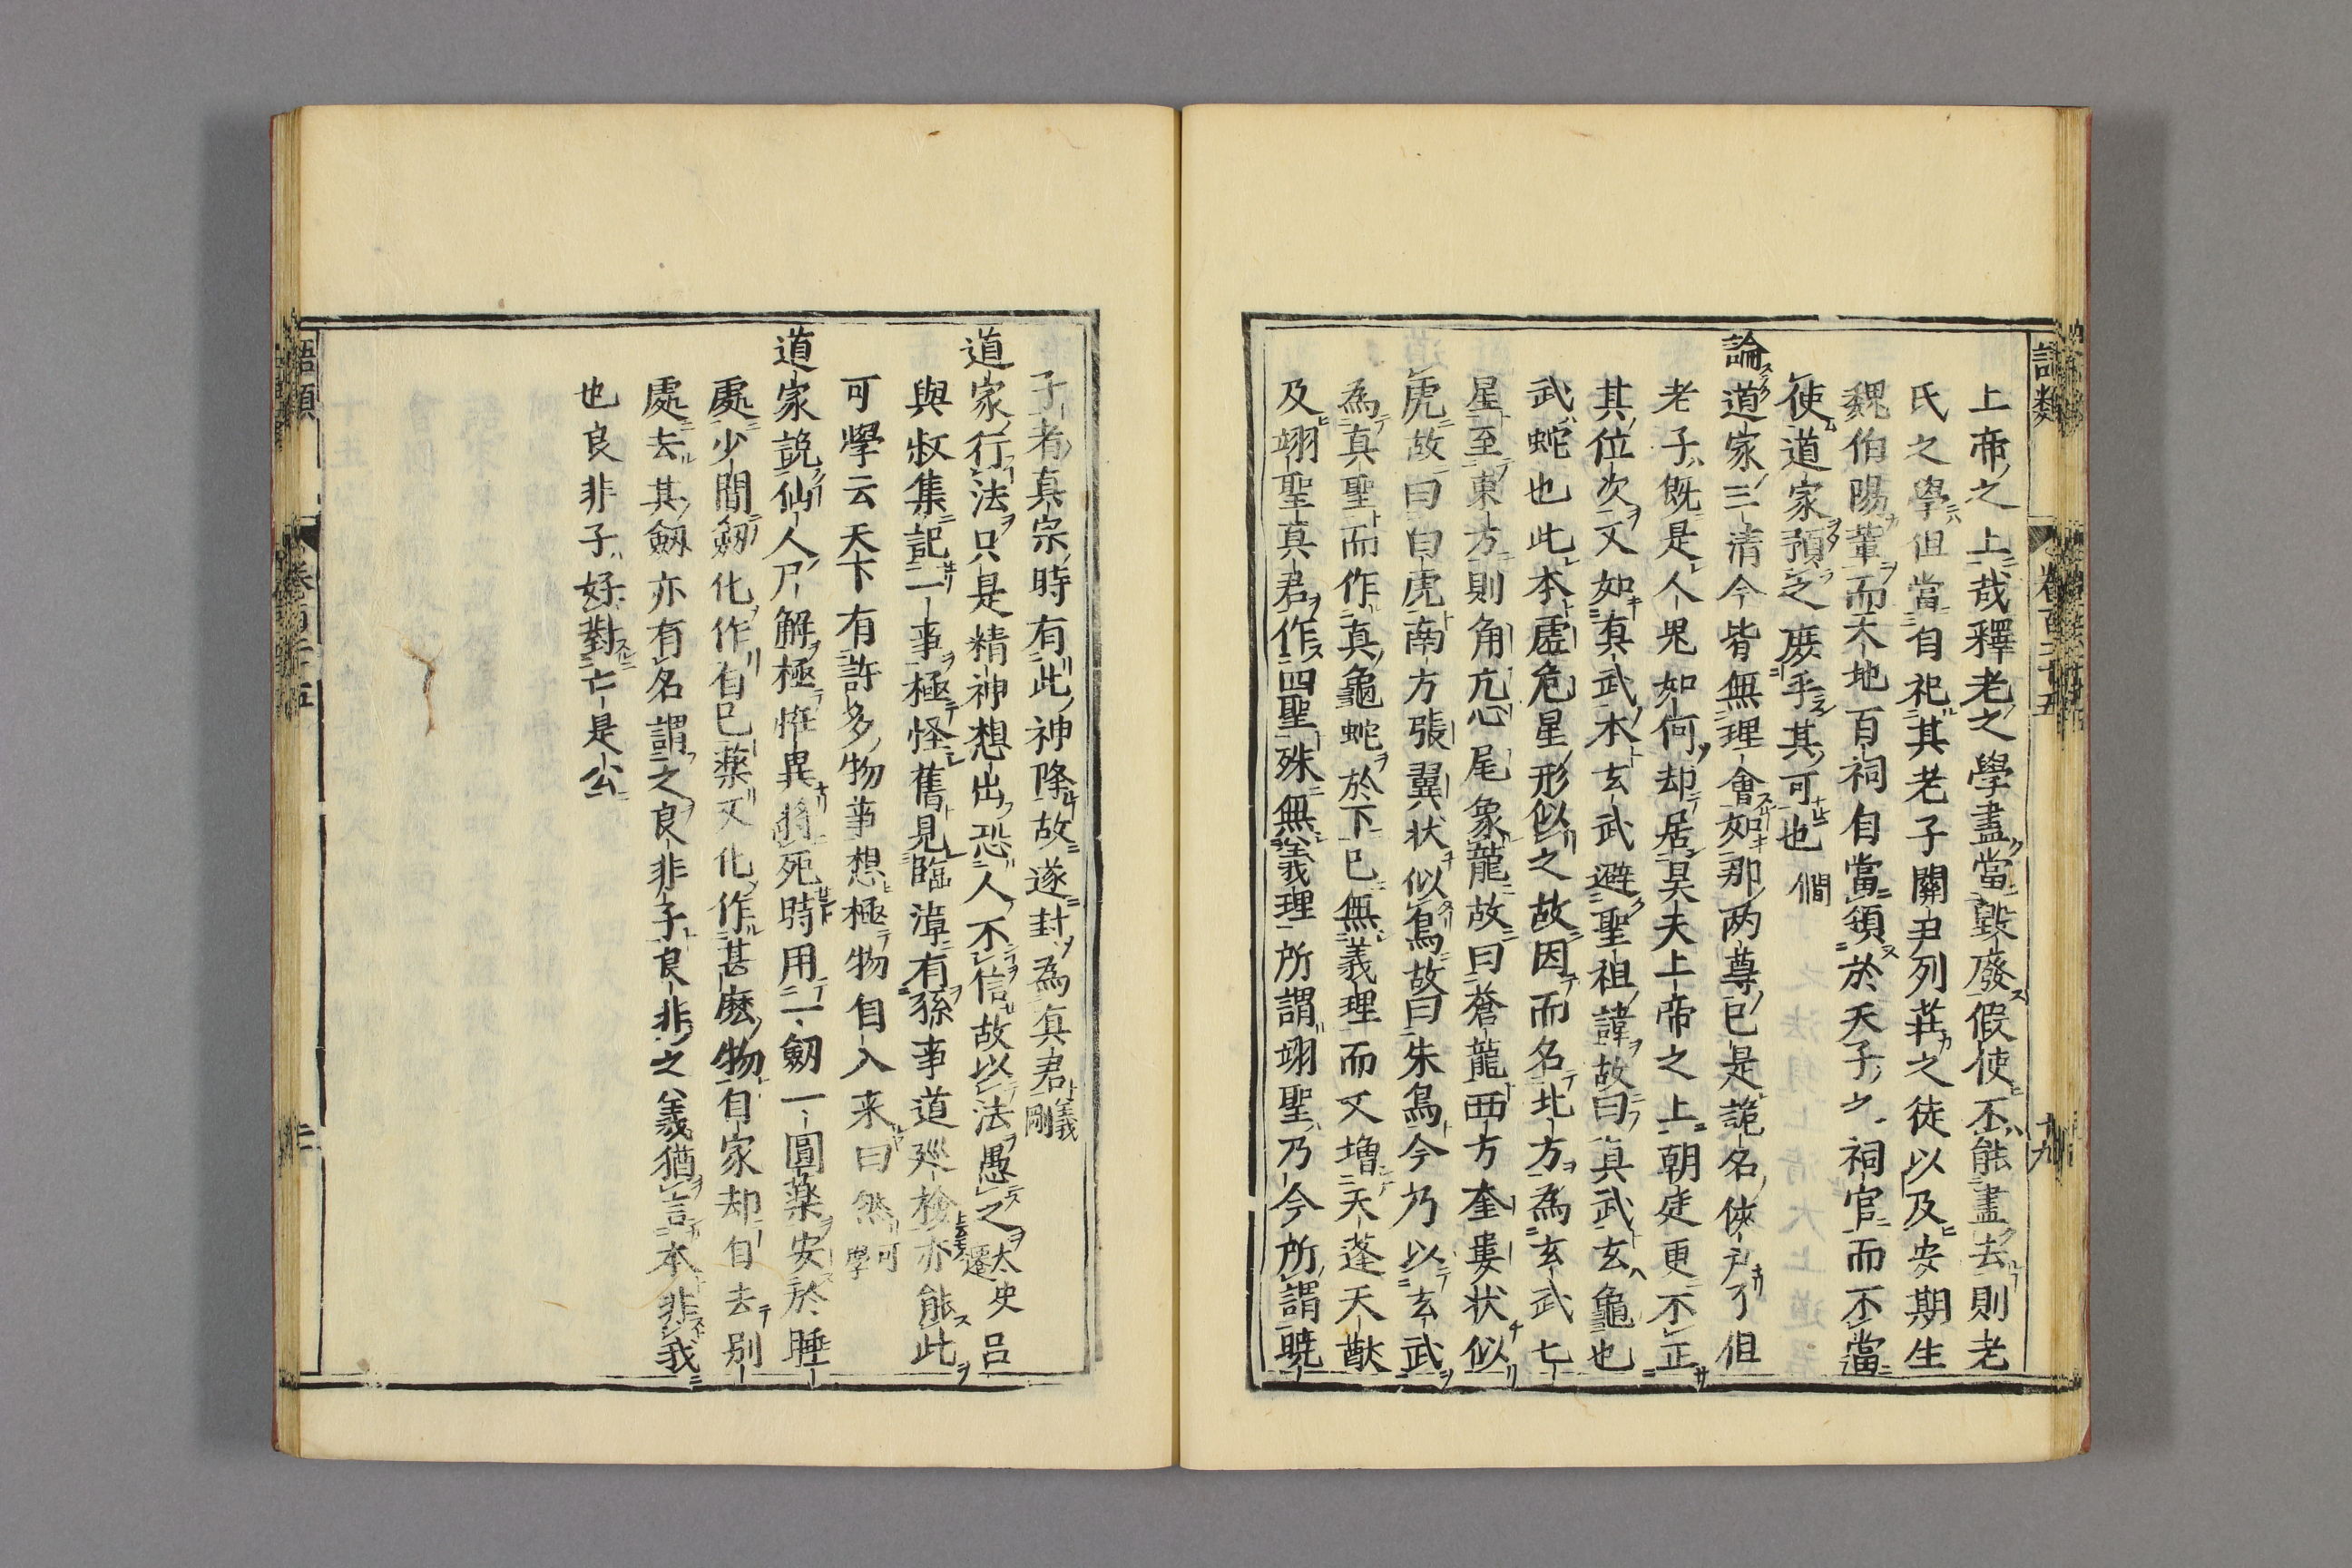 語類 卷百二十五 十九
上帝之上哉釋老之學盡當毀廢假使不能盡去則老
氏之學但當自祀其老子關尹列莊之徒以及安期生
魏伯陽輩而天地百祠自當領於天子之祠官而不當
使道家預之庶乎其可也 僩
論道家三清今皆無理會如那兩尊已是詭名俠戶了但
老子既是人鬼如何却居昊天上帝之上朝廷更不正
其位次又如真武本玄武避聖祖諱故曰真武玄龜也
武蛇也此本虛危星形似之故因而名北方為玄武七
星至東方則角亢心尾象龍故曰蒼龍西方奎婁狀似
虎故曰白虎南方張翼狀似鳥故曰朱鳥今乃以玄武
為真聖而作真龜蛇於下已無義理而又增天蓬天猷
及翊聖真君作四聖殊無義理所謂翊聖乃今所謂曉
子者真宗時有此神降故遂封為真君 義剛
道家行法只是精神想出恐人不信故以法愚之太史 遷 呂
與叔集記一事極怪舊見臨漳有孫事道廵檢亦能此
可學云天下有許多物事想極物自入来曰然 可學
道家說仙人尸解極怪異將死時用一劒一圓藥安於睡
處少間劒化作自己藥又化作甚麽物自家却自去别
處去其劒亦有名謂之良非子良非之義猶言本非我
也良非子好對亡是公
語類 卷百二十五